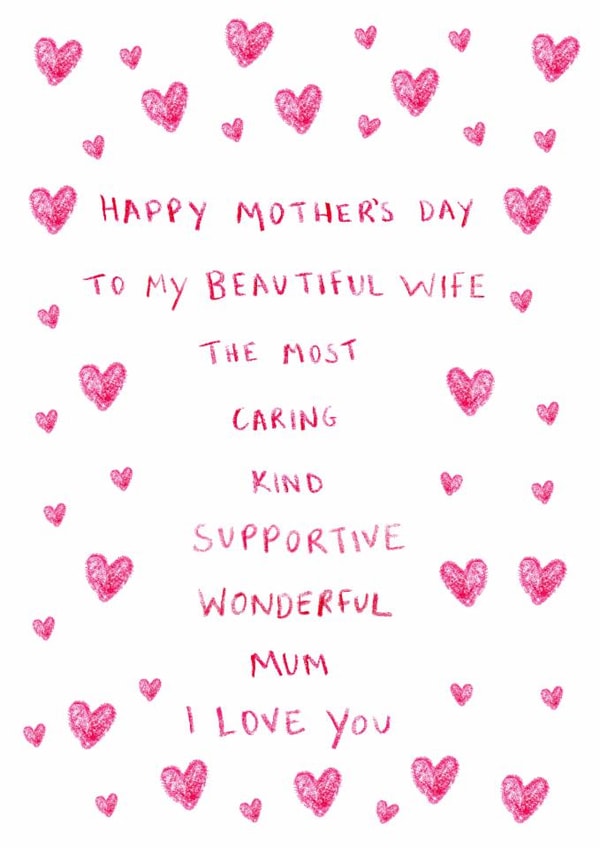 HAPPY MOTHER'S DAY
TO MY BEAUTIFUL WIFE
THE MOST
CARING
KIND
SUPPORTIVE
WONDERFUL
MUM
I LOVE YOU